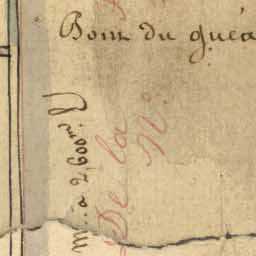 Bom du guéa
à 2,600m
De la
N°